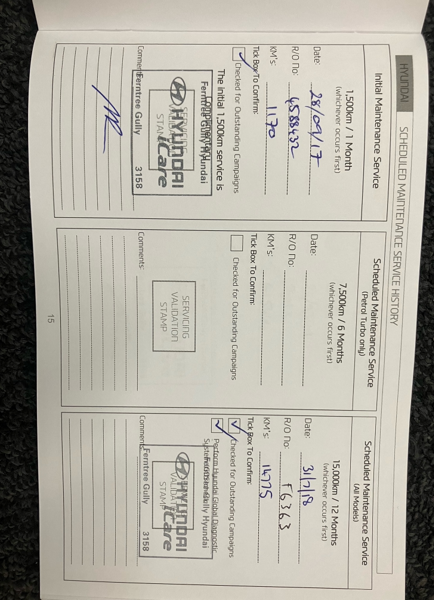 HYUNDAI SCHEDULED MAINTENANCE SERVICE HISTORY
Initial Maintenance Service
1,500km / 1 Month
(whichever occurs first)
Date: 28/09/17
R/O No: 4588432
KM's: 1170
Tick Box To Confirm:
Checked for Outstanding Campaigns
The initial 1,500km service is
complimentary
Ferntree Gully Hyundai
HYUNDAI
iCare
SERVICING
VALIDATION
STAMP
Ferntree Gully 3158
Comments:
Scheduled Maintenance Service
(Petrol Turbo only)
7,500km / 6 Months
(whichever occurs first)
Date:
R/O No:
KM's:
Tick Box To Confirm:
Checked for Outstanding Campaigns
SERVICING
VALIDATION
STAMP
Comments:
15
Scheduled Maintenance Service
(All Models)
15,000km / 12 Months
(whichever occurs first)
Date: 31/7/18
R/O No: F6363
KM's: 14775
Tick Box To Confirm:
Checked for Outstanding Campaigns
Perform Hyundai Global Diagnostic
System
Ferntree Gully Hyundai
HYUNDAI
iCare
VALIDATION
STAMP
Ferntree Gully 3158
Comments: